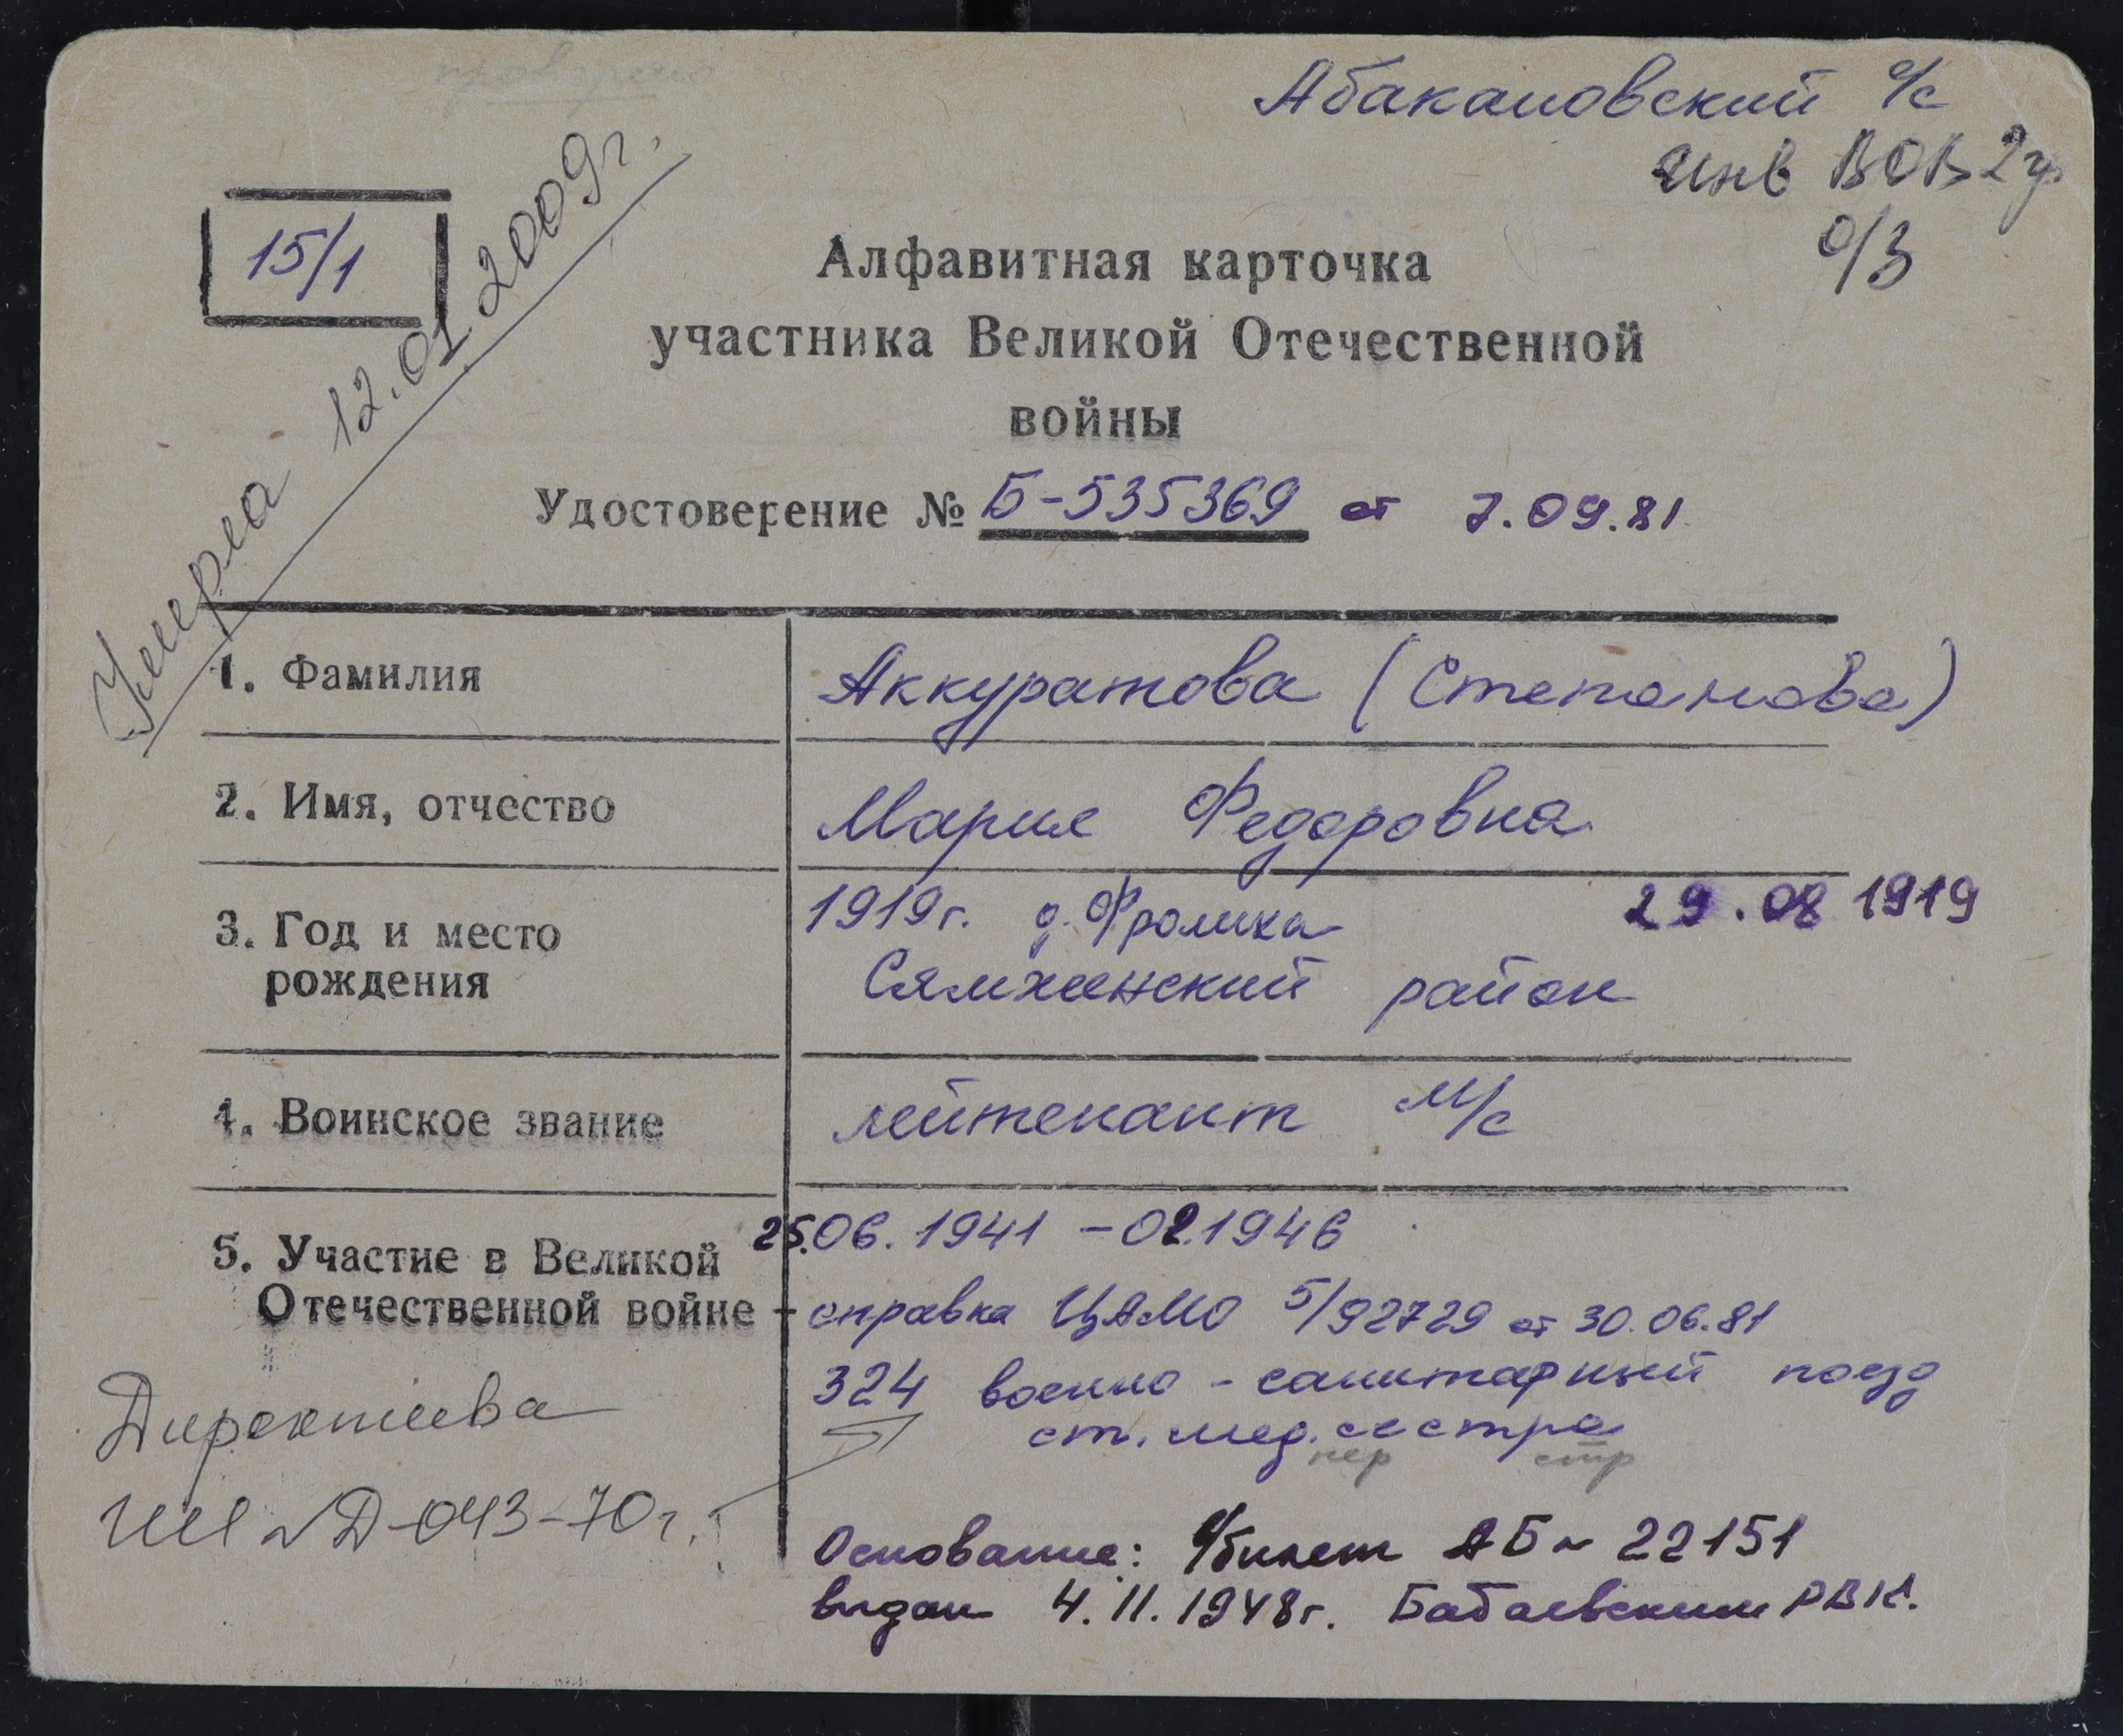 проверено
Абакановский с/с
Инв ВОВ 2гр
о/з
15/1
Умерла 12.01.2009г.
Алфавитная карточка
участника Великой Отечественной
войны
Удостоверение № Б-535369 от 7.09.81
1. Фамилия
Аккуратова (Степанова)
2. Имя, отчество
Мария Федоровна
3. Год и место
рождения
1919г. д. Фролиха 29.08 1919
Сямженский район
4. Воинское звание
лейтенант м/с
5. Участие в Великой
Отечественной войне
25.06.1941 - 02.1946
справка ЦАМО 5/92729 от 30.06.81
324 военно-санитарный поезд
ст. мед. сестра
пер стр
Директива
№ Д-043-70г.
Основание: в/билет АБ № 22151
выдан 4.11.1948г. Бабаевским РВК.